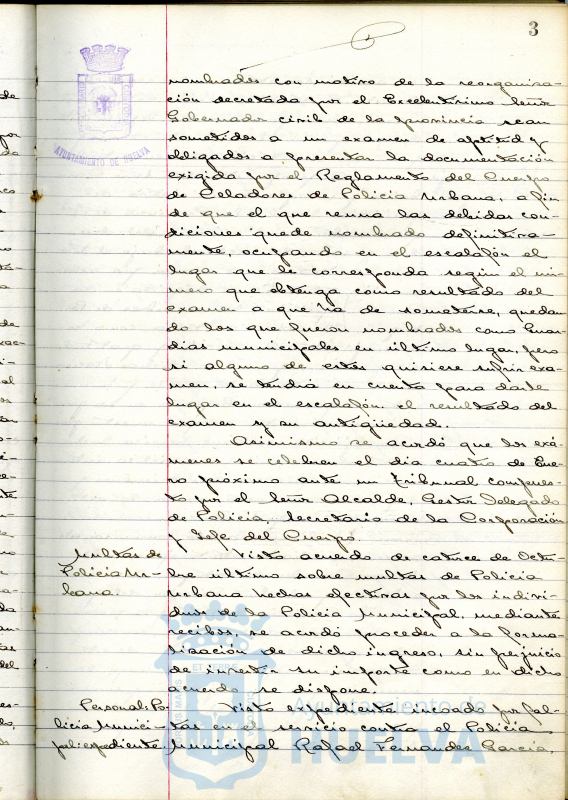 3
AYUNTAMIENTO DE HUELVA
nombrados con motivo de la reorganiza-
ción decretada por el Excelentísimo Señor
Gobernador civil de la provincia sean
sometidos a un examen de aptitud y
obligados a presentar la documentación
exigida por el Reglamento del Cuerpo
de Celadores de Policía Urbana, a fin
de que el que reuna las debidas con-
diciones quede nombrado definitiva-
mente, ocupando en el escalafón el
lugar que le corresponda según el nú-
mero que obtenga como resultado del
examen a que ha de someterse, quedan-
do los que fueron nombrados como Guar-
dias municipales en último lugar, pero
si alguno de estos quisiere sufrir exa-
men, se tendrá en cuenta para darle
lugar en el escalafón el resultado del
examen y su antigüedad.
Asimismo se acordó que los exá-
menes se celebren el día cuatro de Ene-
ro próximo ante un Tribunal compues-
to por el Señor Alcalde, Gestor Delegado
de Policía, Secretario de la Corporación
y Jefe del Cuerpo.
Multas de
Policía Ur-
bana.
Visto acuerdo de catorce de Octu-
bre último sobre multas de Policía
Urbana hechas efectivas por los indivi-
duos de la Policía Municipal, mediante
recibos, se acordó proceder a la forma-
lización de dicho ingreso, sin perjuicio
de invertir su importe como en dicho
acuerdo se dispone.
Personal: Po-
licía Munici-
pal: expediente.
Visto expediente incoado por fal-
tas en el servicio contra el Policía
Municipal Rafael Fernandez García,
Ayuntamiento de
HUELVA